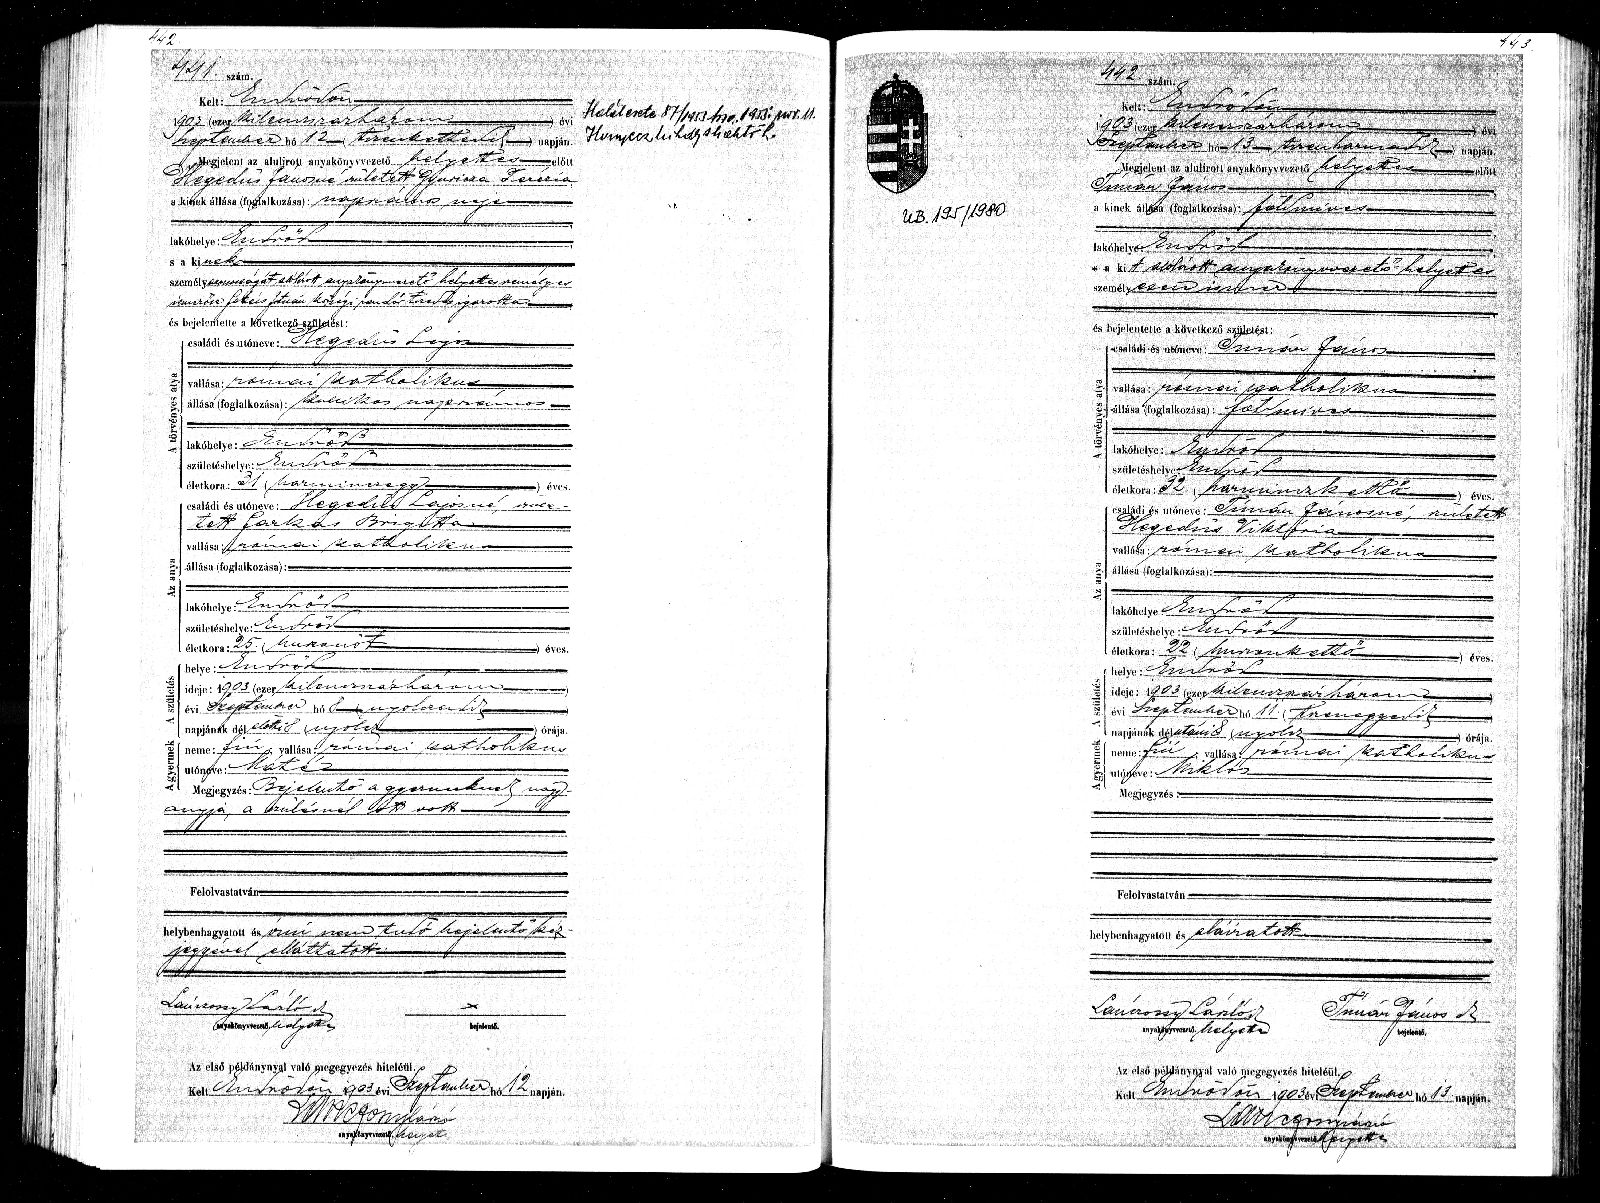 442
441. szám.
Kelt: Endrődön
1903 (ezer kilenczszázhárom ) évi
Szeptember hó 12 ( tizenkettedik ) napján.
Megjelent az alulirott anyakönyvvezető helyettes előtt
Hegedüs Jánosné született Gyuricza Terézia
a kinek állása (foglalkozása): napszámos neje
lakóhelye: Endrőd
s a kinek
személyazonosságát alólirott anyakönyvvezető helyettes személyes
ismerőse István községi
és bejelentette a következő születést:
A törvényes atya
családi és utóneve: Hegedüs Lajos
vallása: római katholikus
állása (foglalkozása): napszámos
lakóhelye: Endrőd
születéshelye: Endrőd
életkora: 31 ( harminczegy ) éves.
Az anya
családi és utóneve: Hegedüs Lajosné, szüle-
tett Farkas Brigitta
vallása: római katholikus
állása (foglalkozása):
lakóhelye: Endrőd
születéshelye: Endrőd
életkora: 25 ( huszonöt ) éves.
A születés
helye: Endrőd
ideje: 1903 (ezer kilenczszázhárom )
évi Szeptember hó 8 ( nyolczadik )
napjának délelőtt 8 ( nyolcz ) órája.
A gyermek
neme: fiú, vallása: római katholikus
utóneve: Máté
Megjegyzés: Bejelentő a gyermeknek nagy-
anyja, a szülésnél ott volt
Felolvastatván
helybenhagyatott és irni nem tudó bejelentő kéz-
jegyével elláttatott
László
anyakönyvvezető helyettes
x
bejelentő.
Az első példánynyal való megegyezés hiteléül.
Kelt Endrődön 1903 évi Szeptember hó 12 napján.
anyakönyvvezető helyett
Halálesete 87/1953 hsz. 1953. nov. 11.
UB. 195/1980
443
442 szám.
Kelt: Endrődön
1903 (ezer kilenczszázhárom ) évi
Szeptember hó 13 ( tizenharmadik ) napján.
Megjelent az alulirott anyakönyvvezető helyettes előtt
Timár János
a kinek állása (foglalkozása): földmíves
lakóhelye: Endrőd
s a kit alólirott anyakönyvvezető helyettes
személyesen ismer
és bejelentette a következő születést:
A törvényes atya
családi és utóneve: Timár János
vallása: római katholikus
állása (foglalkozása): földmíves
lakóhelye: Endrőd
születéshelye: Endrőd
életkora: 32 ( harminczkettő ) éves.
Az anya
családi és utóneve: Timár Jánosné, született
Hegedüs Viktória
vallása: római katholikus
állása (foglalkozása):
lakóhelye: Endrőd
születéshelye: Endrőd
életkora: 22 ( huszonkettő ) éves.
A születés
helye: Endrőd
ideje: 1903 (ezer kilenczszázhárom )
évi Szeptember hó 11. ( tizenegyedik )
napjának délutáni 8 ( nyolcz ) órája.
A gyermek
neme: fiú, vallása: római katholikus
utóneve: Miklós
Megjegyzés:
Felolvastatván
helybenhagyatott és aláiratott
László
anyakönyvvezető helyettes
Timár János
bejelentő.
Az első példánynyal való megegyezés hiteléül.
Kelt Endrődön 1903 évi Szeptember hó 13 napján.
anyakönyvvezető helyettes